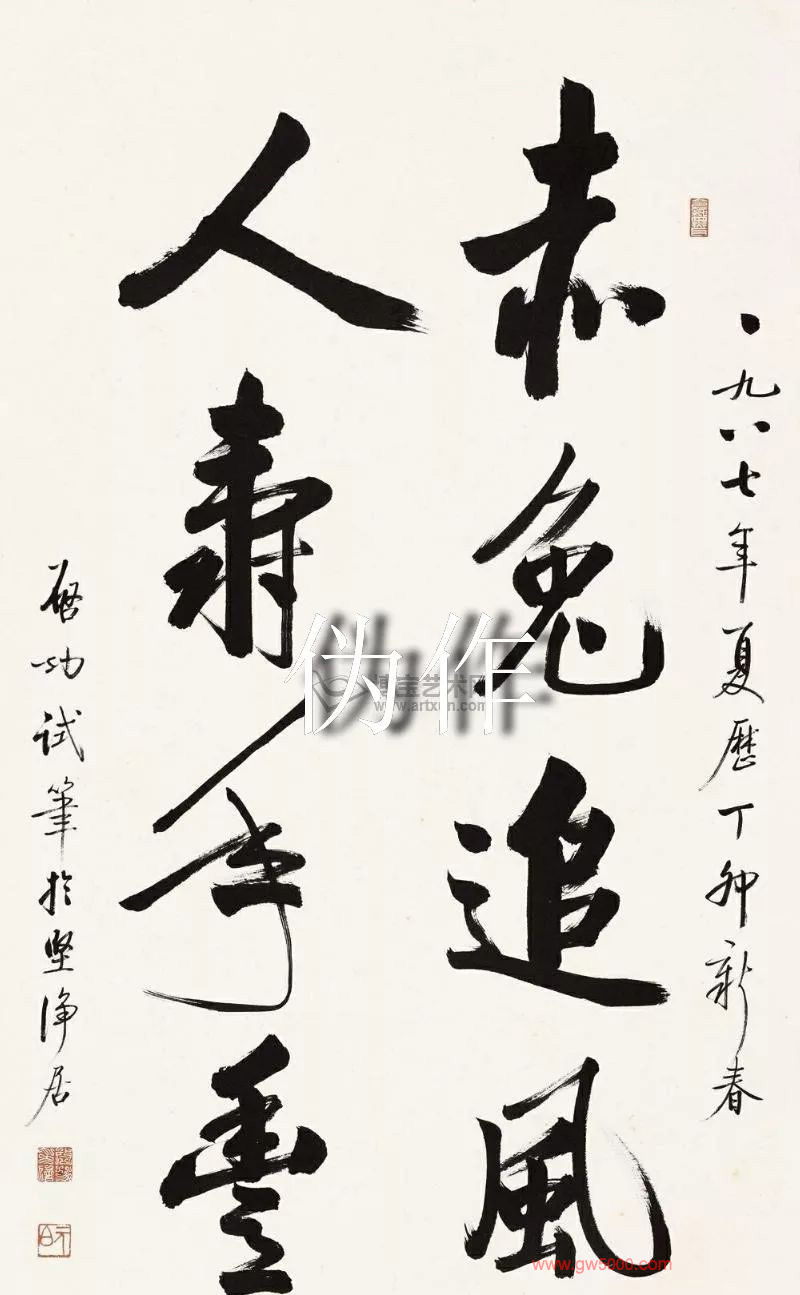 一九八七年夏历丁卯新春
赤兔追風
人壽年豐
启功试筆於坚净居
伪作
博宝艺术网
www.artxun.com
www.gw5000.com